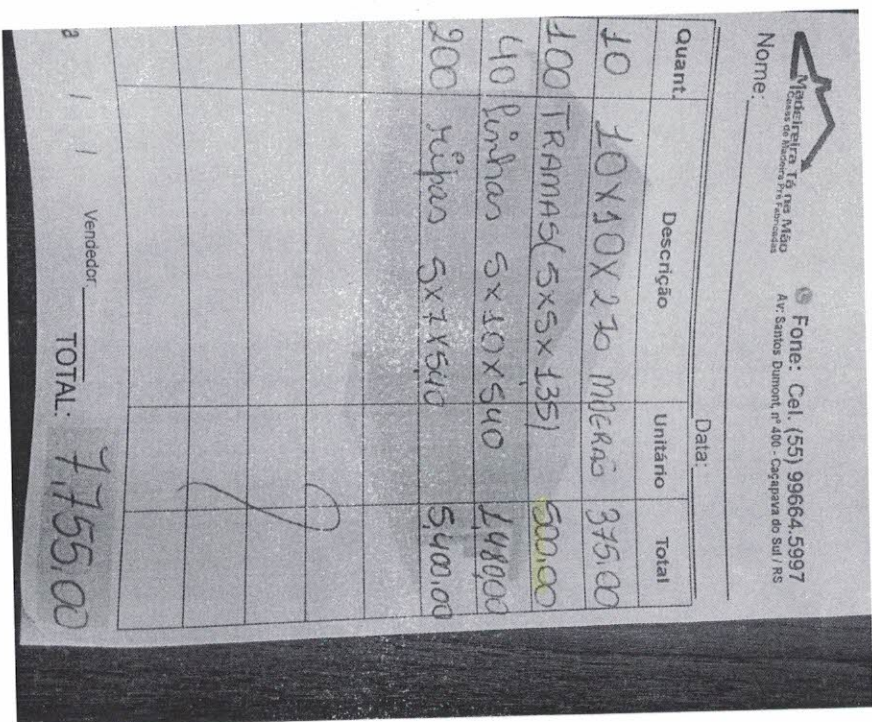 Madeireira Tá na Mão
Casas de Madeira Pré Fabricadas
Fone: Cel. (55) 99664.5997
Av: Santos Dumont, nº 400 - Caçapava do Sul / RS
Nome:
Data:
Quant. Descrição Unitário Total
10 10X10X270 MOERÃO 375,00
100 TRAMAS (5X5X135) 500,00
40 linhas 5X10X540 1,480,00
200 ripas 5X7X540 5,400,00
a / / Vendedor TOTAL: 7,755,00